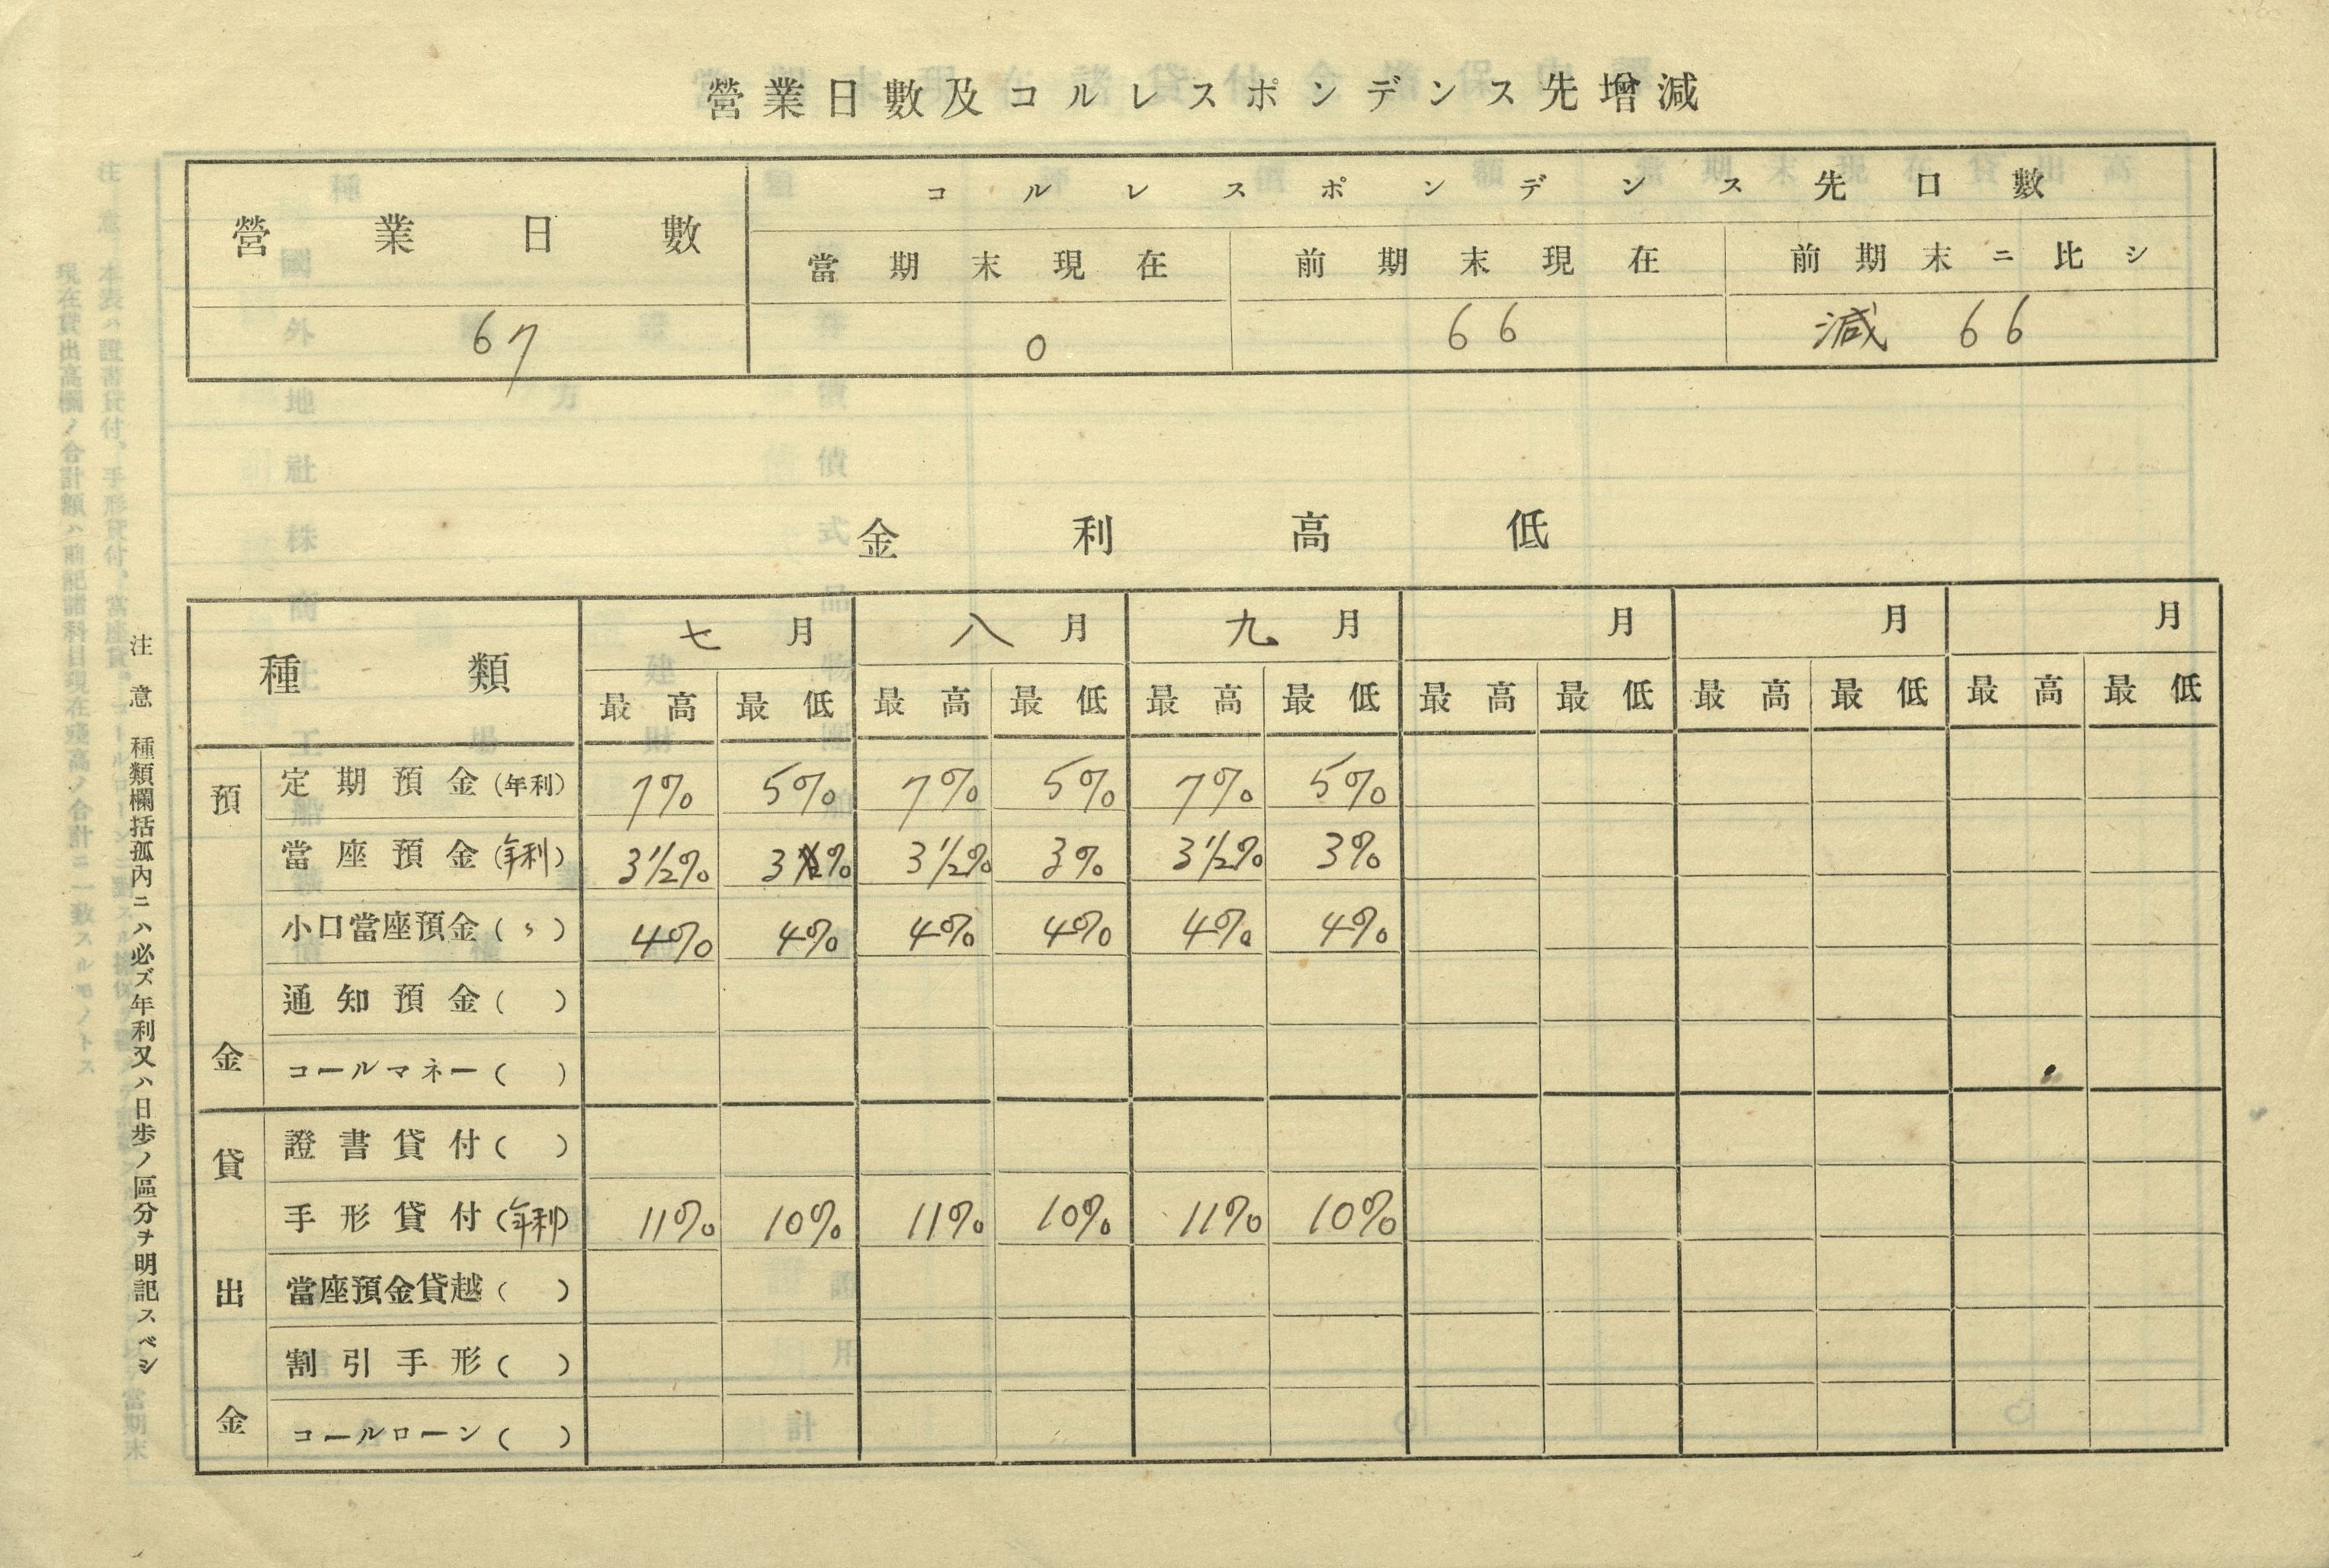 營業日數及コルレスポンデンス先增減
營業日數
コルレスポンデンス先口數
當期末現在 前期末現在 前期末ニ比シ
67 0 66 減 66
金利高低
種類 七月 八月 九月 月 月 月
最高 最低 最高 最低 最高 最低 最高 最低 最高 最低 最高 最低
預金
定期預金(年利) 7% 5% 7% 5% 7% 5%
當座預金(年利) 3½% 3% 3½% 3% 3½% 3%
小口當座預金(〃) 4% 4% 4% 4% 4% 4%
通知預金( )
コールマネー( )
貸出金
證書貸付( )
手形貸付(年利) 11% 10% 11% 10% 11% 10%
當座預金貸越( )
割引手形( )
コールローン( )
注意 種類欄括孤內ニハ必ズ年利又ハ日歩ノ區分ヲ明記スベシ